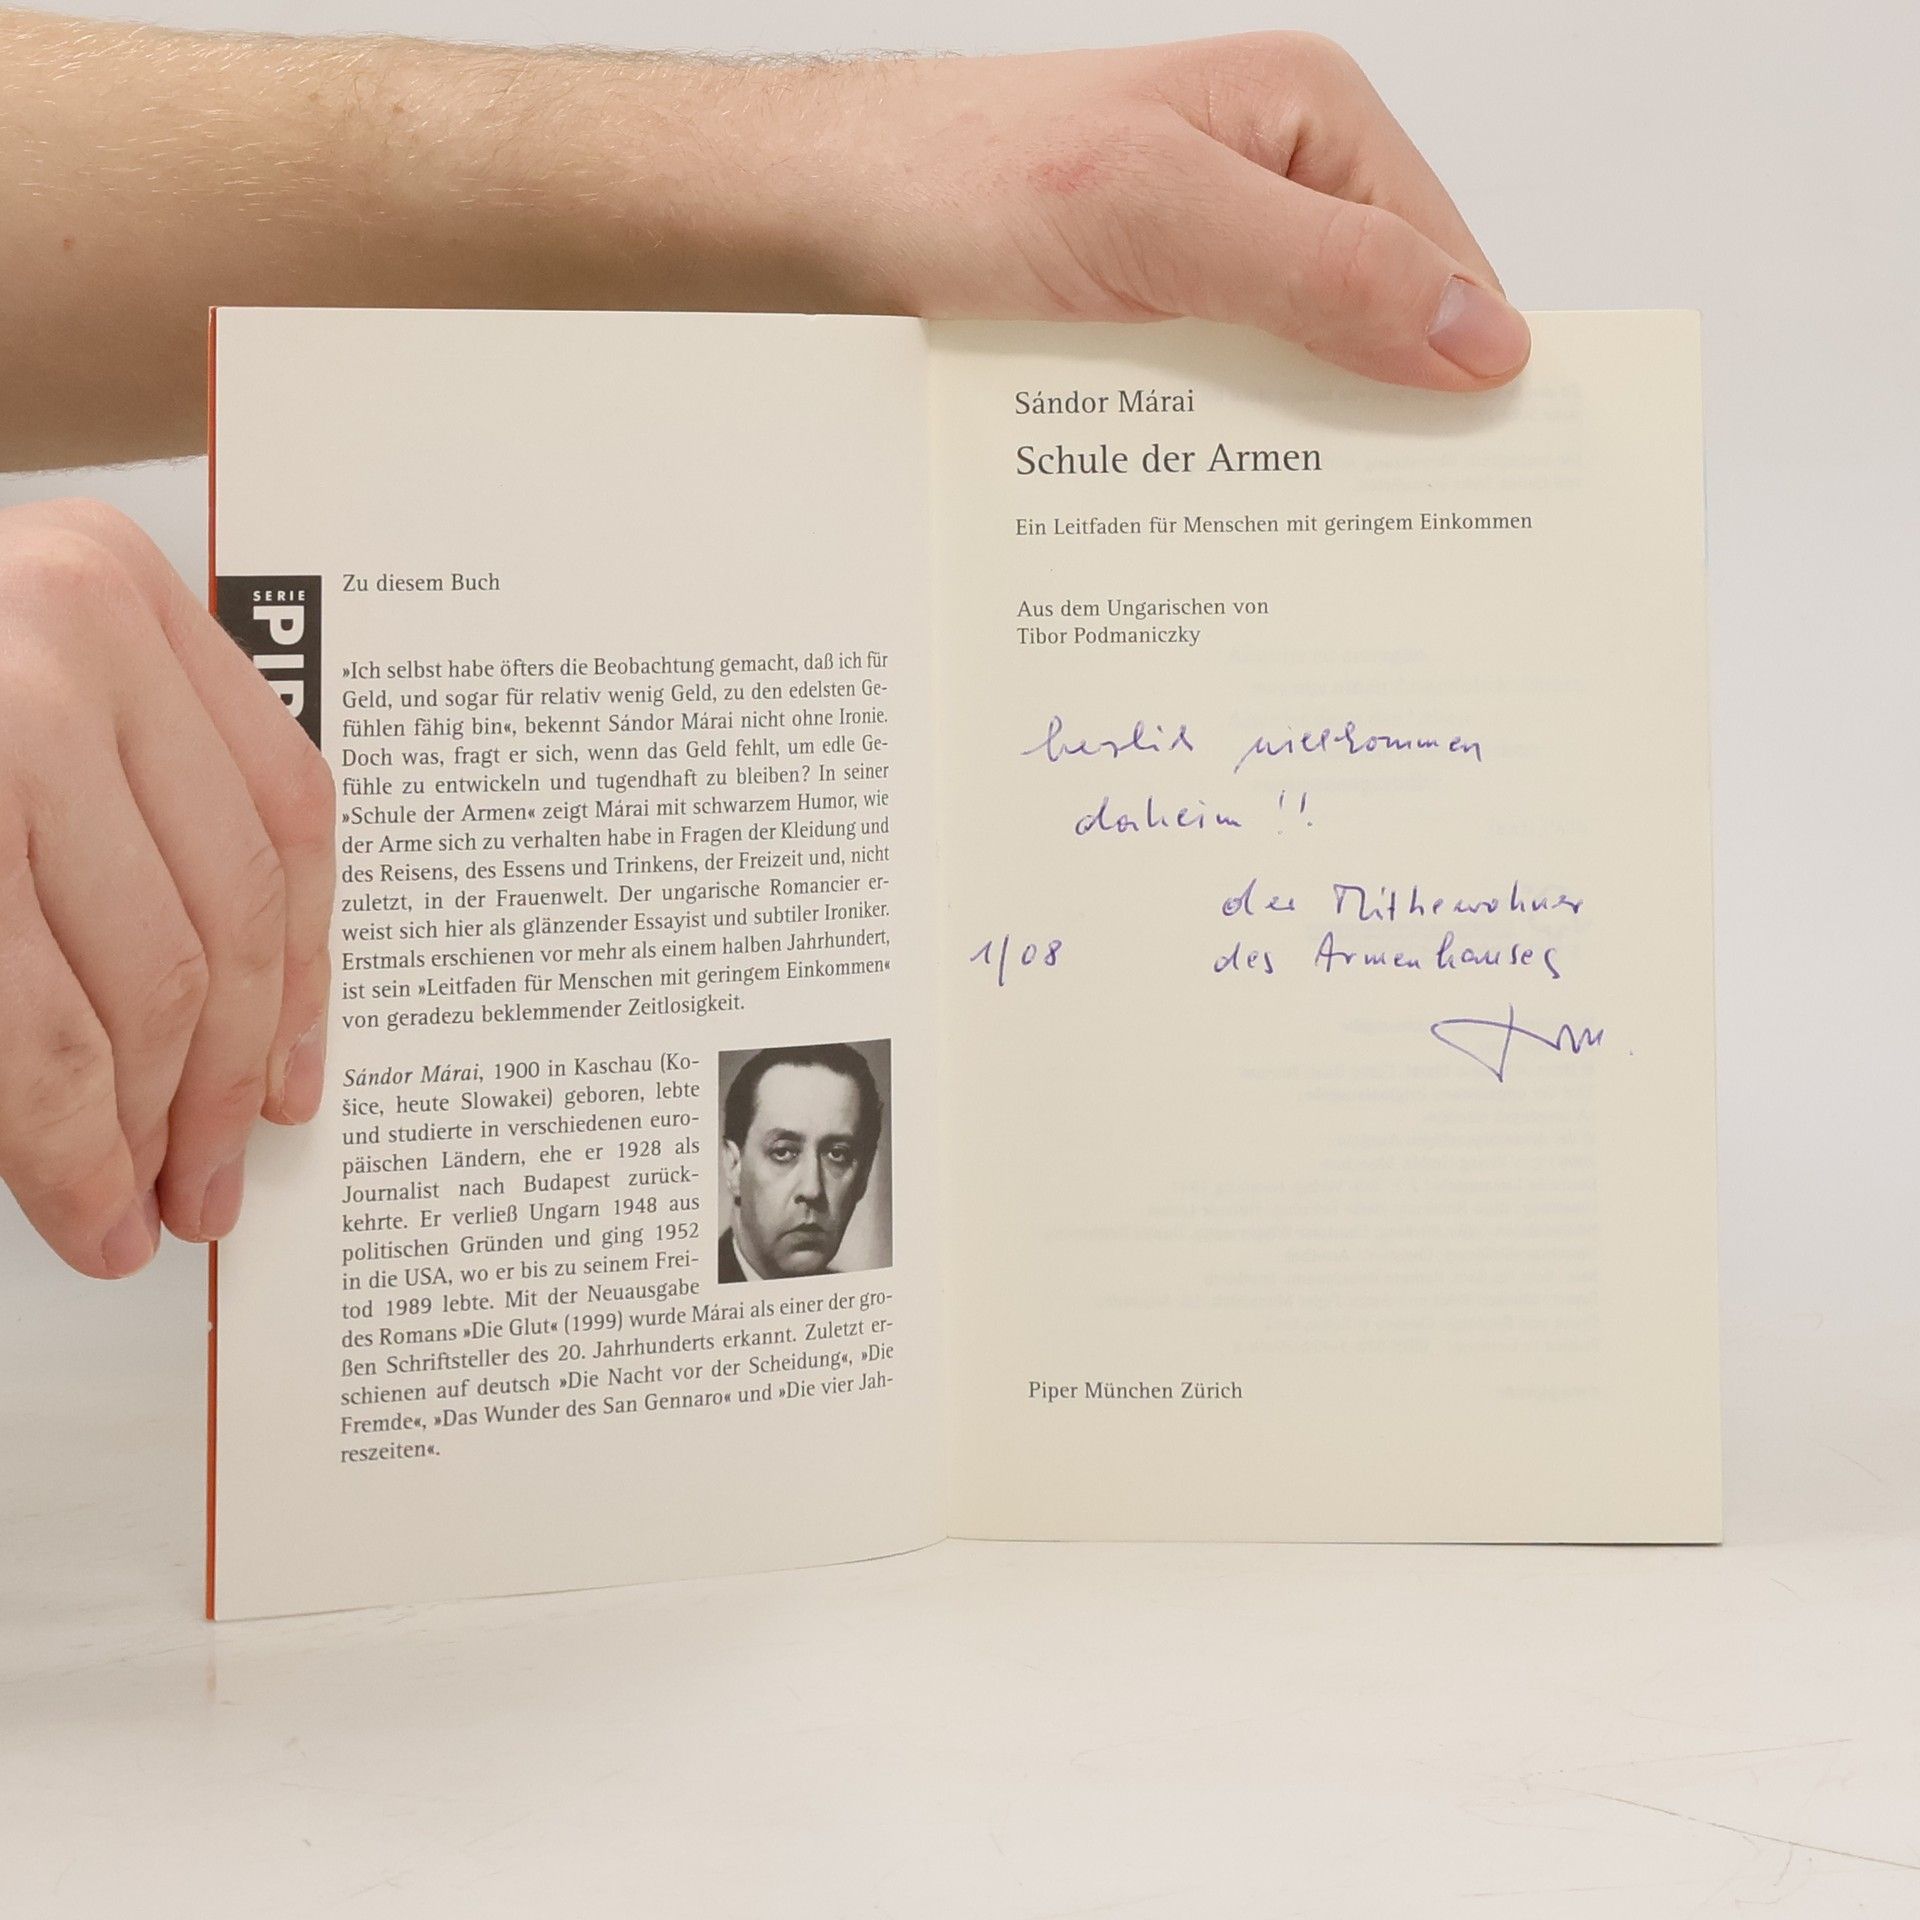 SERIE
Zu diesem Buch
»Ich selbst habe öfters die Beobachtung gemacht, daß ich für
Geld, und sogar für relativ wenig Geld, zu den edelsten Ge-
fühlen fähig bin«, bekennt Sándor Márai nicht ohne Ironie.
Doch was, fragt er sich, wenn das Geld fehlt, um edle Ge-
fühle zu entwickeln und tugendhaft zu bleiben? In seiner
»Schule der Armen« zeigt Márai mit schwarzem Humor, wie
der Arme sich zu verhalten habe in Fragen der Kleidung und
des Reisens, des Essens und Trinkens, der Freizeit und, nicht
zuletzt, in der Frauenwelt. Der ungarische Romancier er-
weist sich hier als glänzender Essayist und subtiler Ironiker.
Erstmals erschienen vor mehr als einem halben Jahrhundert,
ist sein »Leitfaden für Menschen mit geringem Einkommen«
von geradezu beklemmender Zeitlosigkeit.
Sándor Márai, 1900 in Kaschau (Ko-
šice, heute Slowakei) geboren, lebte
und studierte in verschiedenen euro-
päischen Ländern, ehe er 1928 als
Journalist nach Budapest zurück-
kehrte. Er verließ Ungarn 1948 aus
politischen Gründen und ging 1952
in die USA, wo er bis zu seinem Frei-
tod 1989 lebte. Mit der Neuausgabe
des Romans »Die Glut« (1999) wurde Márai als einer der gro-
ßen Schriftsteller des 20. Jahrhunderts erkannt. Zuletzt er-
schienen auf deutsch »Die Nacht vor der Scheidung«, »Die
Fremde«, »Das Wunder des San Gennaro« und »Die vier Jah-
reszeiten«.
Sándor Márai
Schule der Armen
Ein Leitfaden für Menschen mit geringem Einkommen
Aus dem Ungarischen von
Tibor Podmaniczky
herzlich willkommen
daheim !!
der Mitbewohner
1/08 des Armenhauses
Piper München Zürich